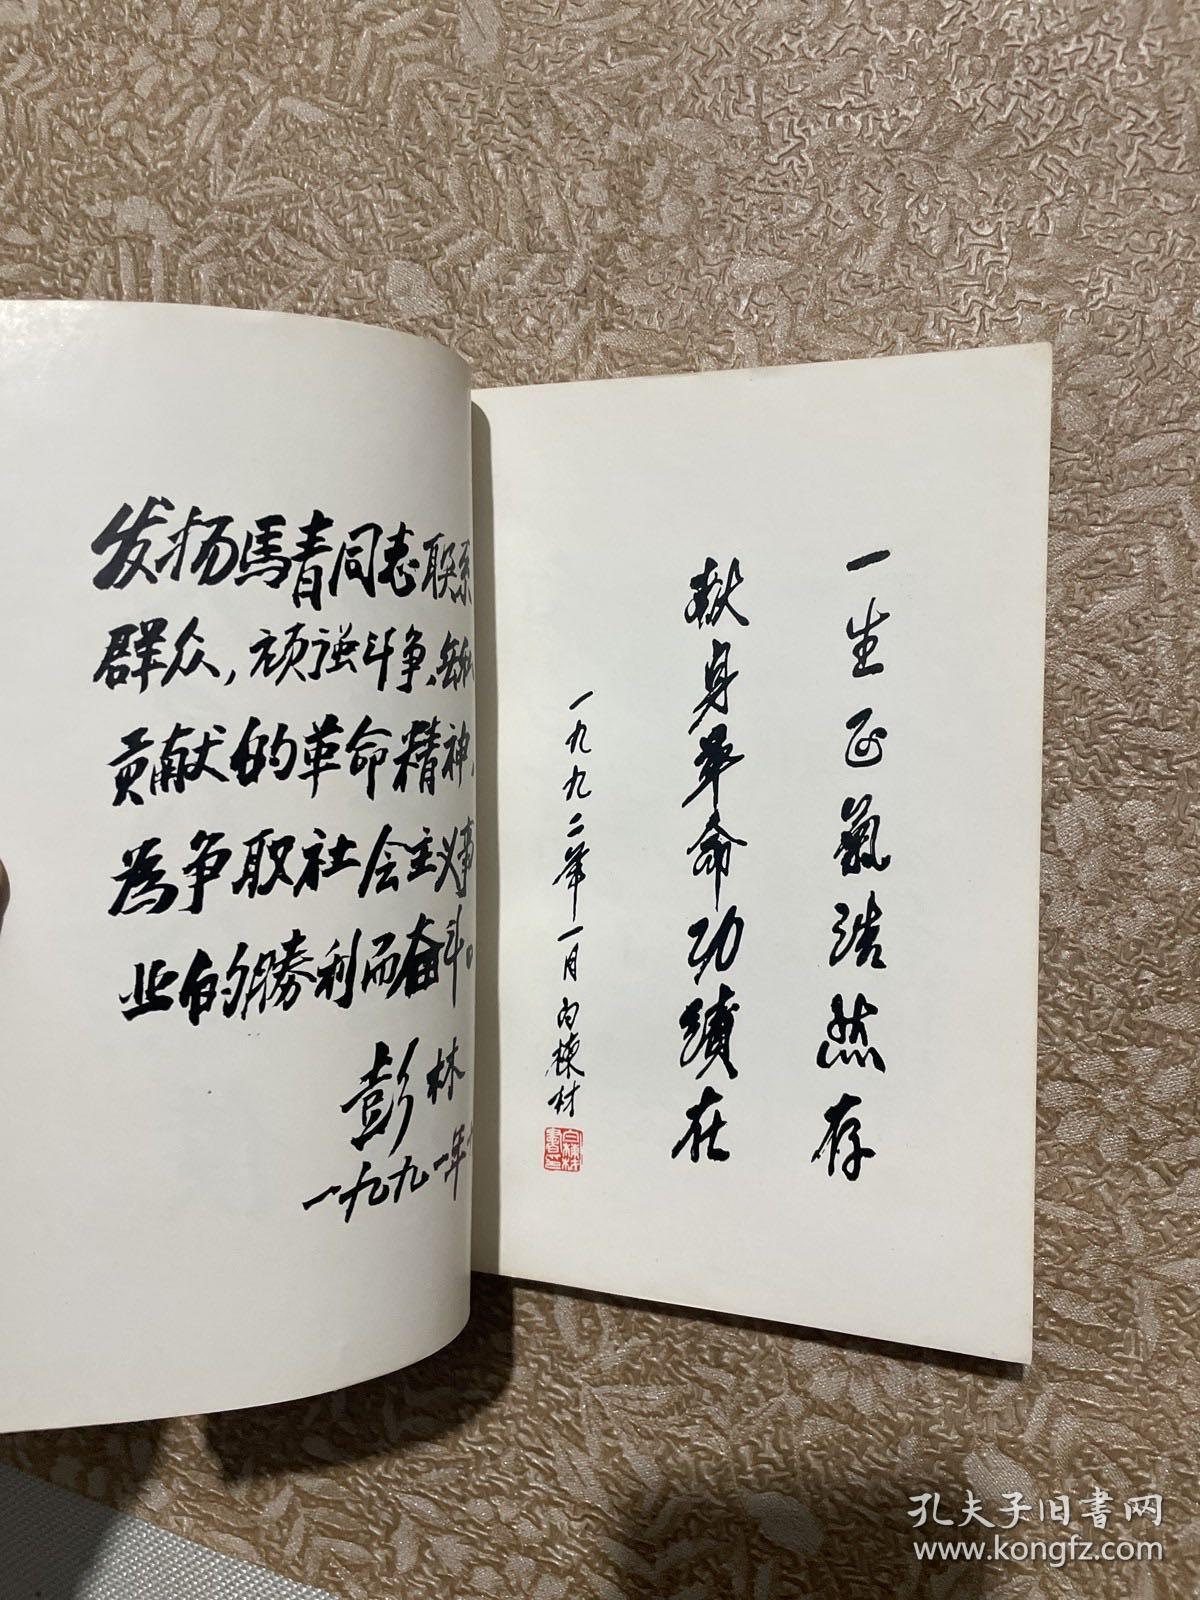 发扬馬青同志联系
群众,顽强斗争,無私
贡献的革命精神,
為争取社会主义事
业的勝利而奋斗。
彭林
一九九一年
一生正氣浩然存
献身革命功績在
一九九二年一月白棟材
孔夫子旧書网
www.kongfz.com